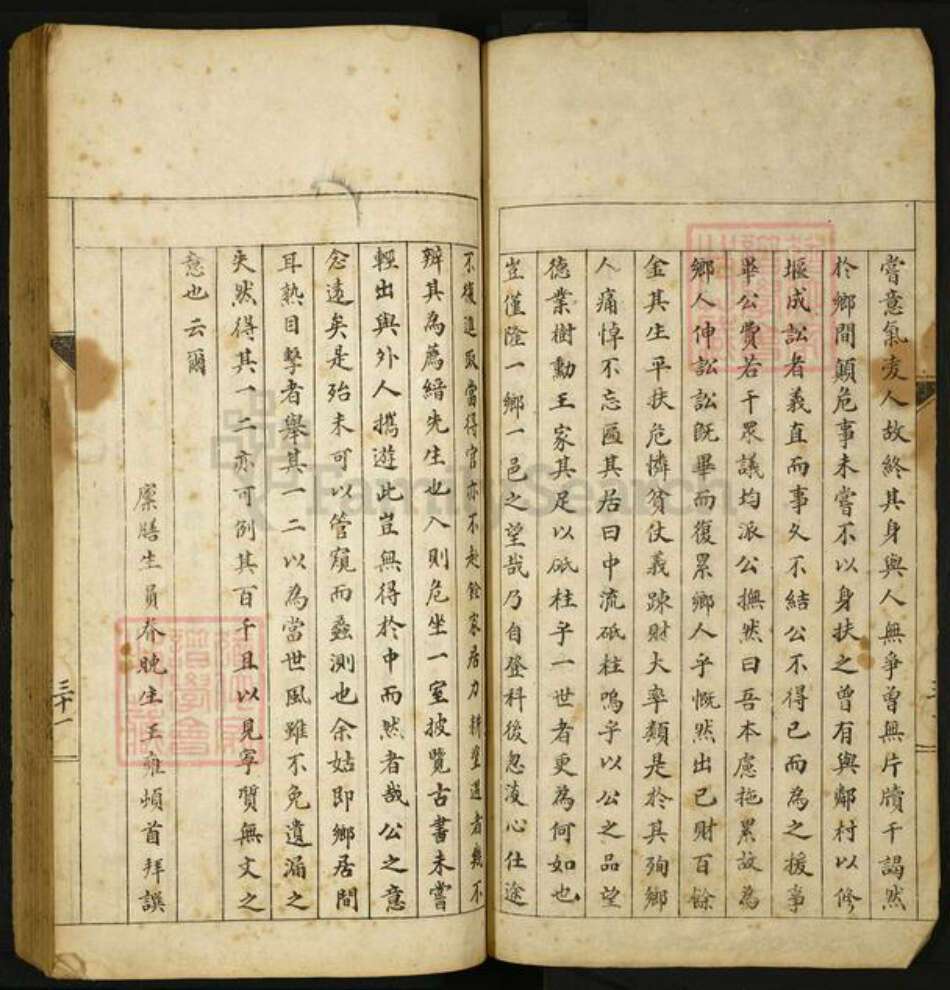 嘗意氣凌人故終其身與人無爭曾無片牘干謁然
於鄉間顛危事未嘗不以身扶之曾有與鄰村以修
堰成訟者義直而事久不結公不得已而為之援事
畢公費若干眾議均派公撫然曰吾本慮拖累故為
鄉人伸訟訟既畢而復累鄉人乎慨然出己財百餘
金其生平扶危憐貧仗義踈財大率類是於其殉鄉
人痛悼不忘匾其居曰中流砥柱嗚乎以公之品望
德業樹勳王家其足以砥柱乎一世者更為何如也
豈僅隆一鄉一邑之望哉乃自登科後忽淡心仕途
不復進取當得官亦不赴銓家居力耕望道者幾不
辨其為薦縉先生也入則危坐一室披覽古書未嘗
輕出與外人攜遊此豈無得於中而然者哉公之意
念遠矣是殆未可以管窺而蠡測也余姑即鄉居間
耳熟目擊者舉其一二以為當世風雖不免遺漏之
失然得其一二亦可例其百千且以見寧質無文之
意也云爾
廩膳生員眷晚生王雍頓首拜譔
三十一
FamilySearch